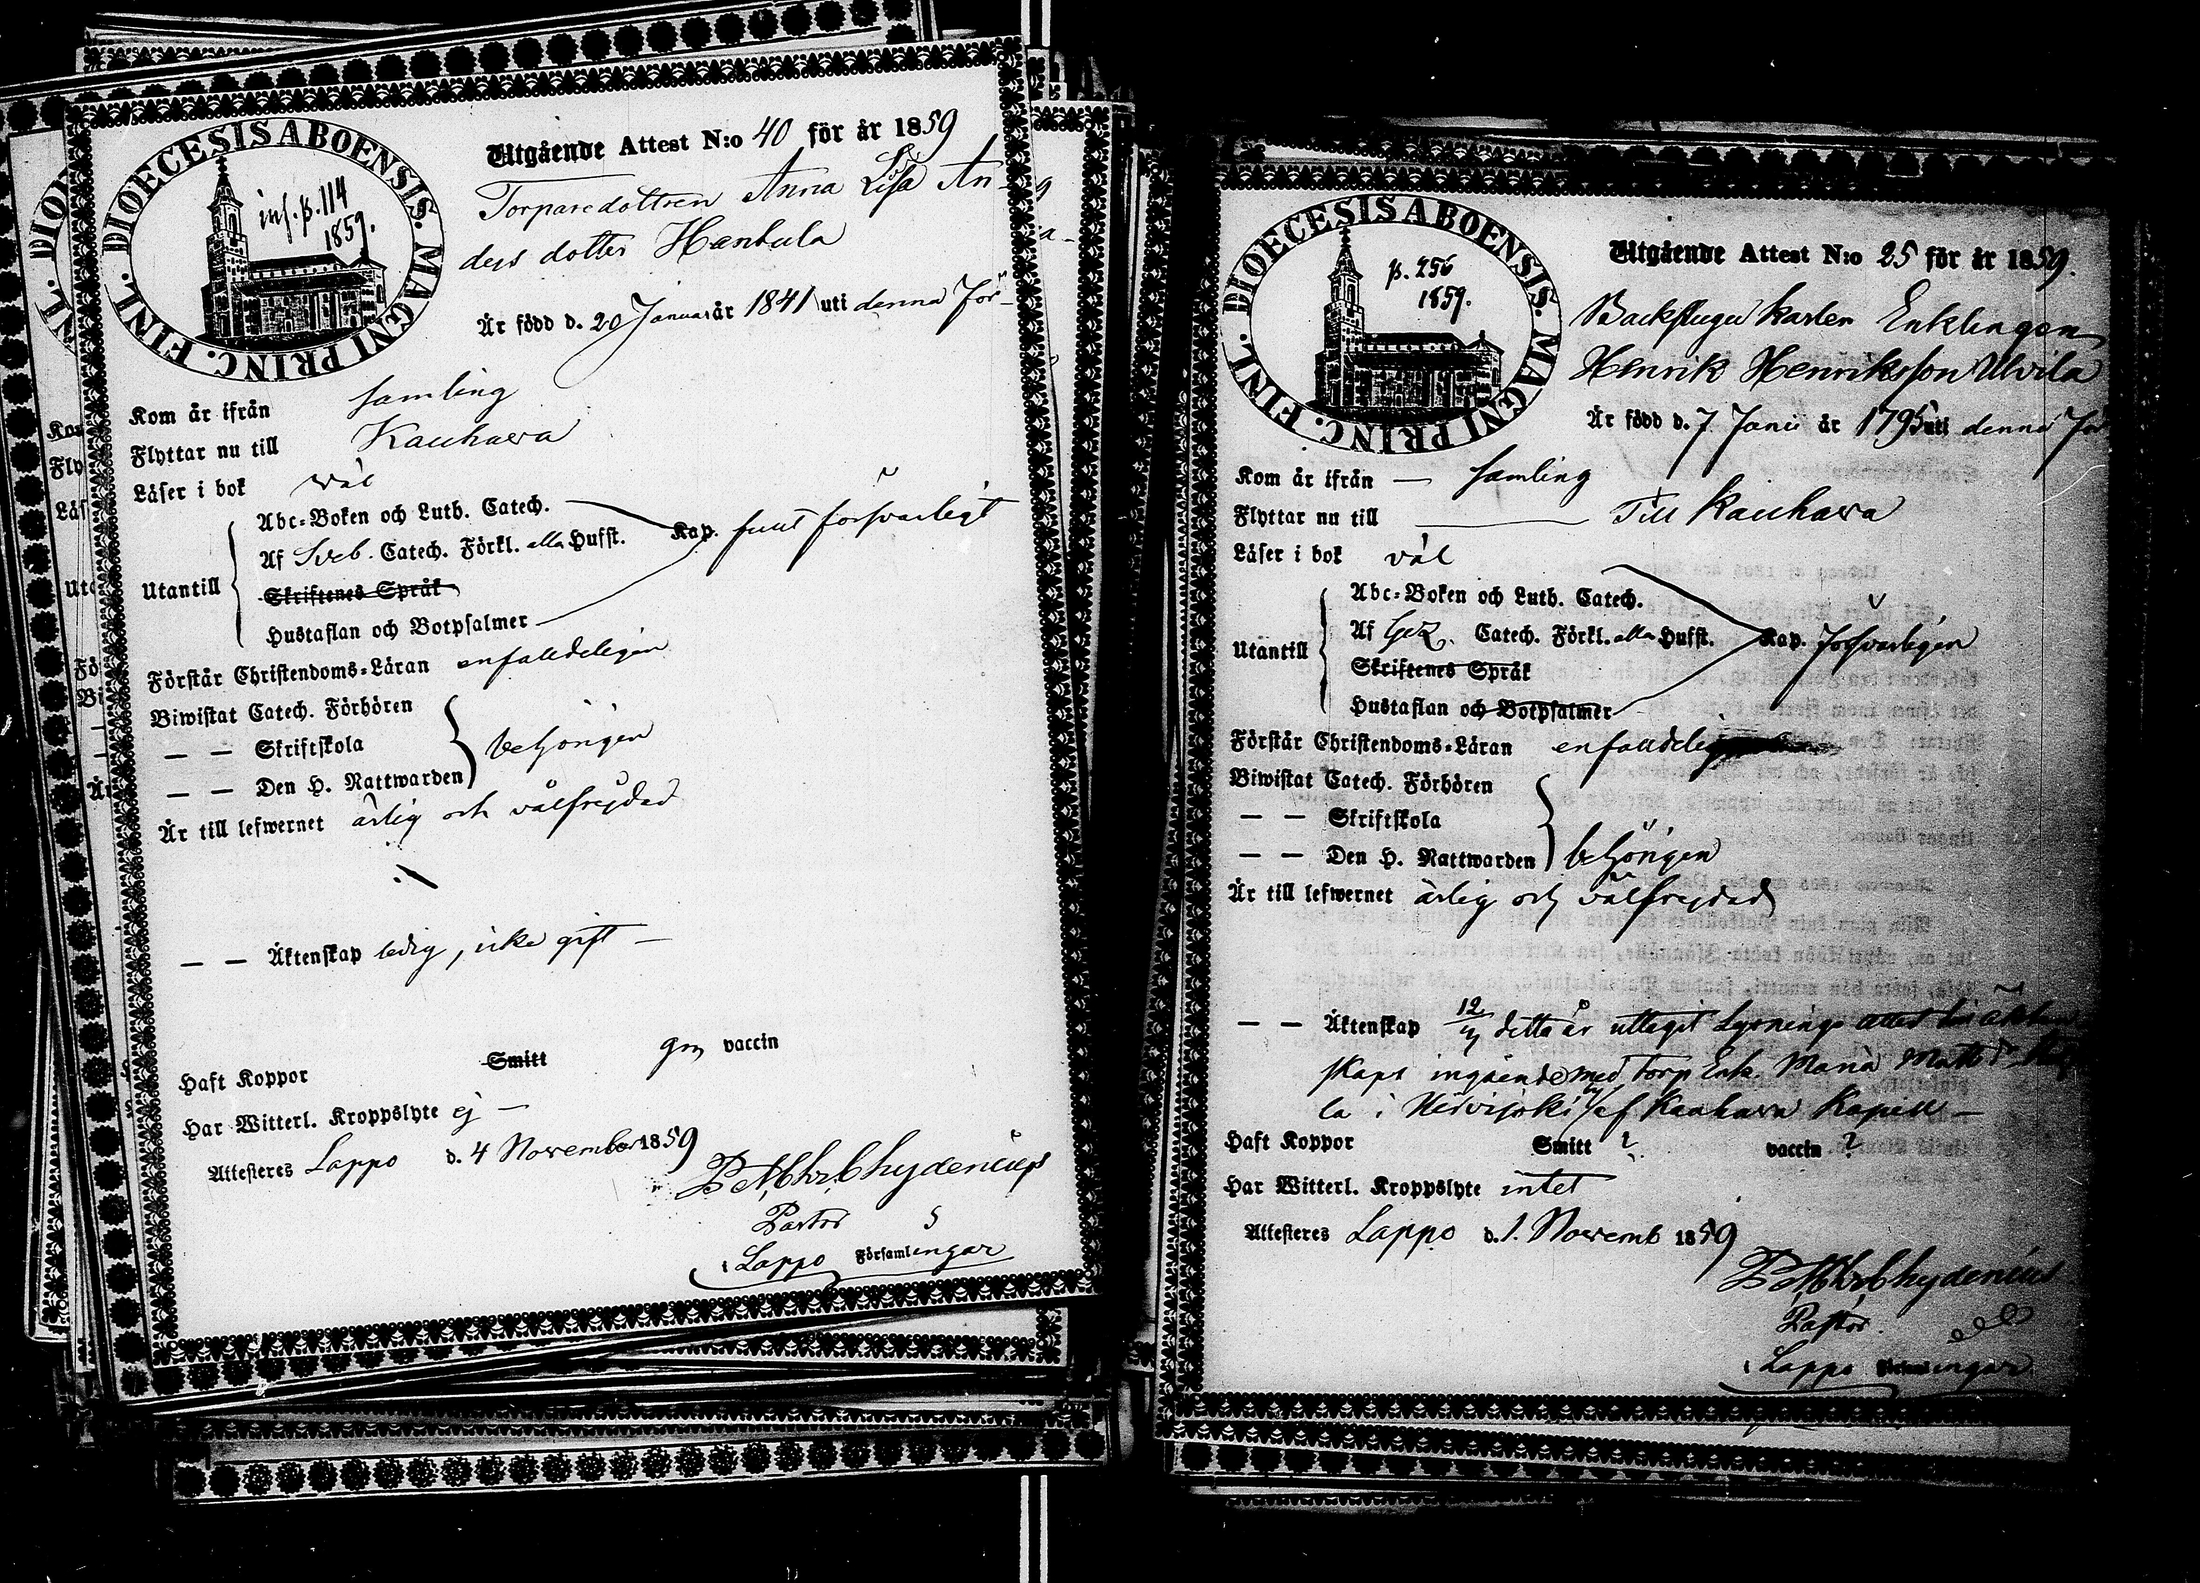 DIOECESIS ABOENSIS. MAGNI PRINC. FINL.
inf. p. 114
1859.
Utgående Attest N:o 40 för år 1859
Torparedottren Anna Lisa An-
ders dotter Hantula
Är född d. 20 Januar år 1841 uti denna För-
Kom är ifrån samling
Flyttar nu till Kauhava
Läser i bok väl
Utantill
Abc-Boken och Luth. Catech.
Af Sveb. Catech. Förkl. alla Hufst.
Kap. fullt försvarligt
Skriftenes Språk
Hustaflan och Botpsalmer
Förstår Christendoms-Läran enfaldeligen
Biwistat Catech. Förhören
— — Skriftskola
behörigen
— — Den H. Nattwarden
Är till lefwernet ärlig och välfrejdad
— — Äktenskap ledig, icke gift —
Haft Koppor Smitt gm vaccin
Har Witterl. Kroppslyte ej —
Attesteres Lappo d. 4 November 1859
P M Chr. Chydenius
Pastor
i Lappo Församlingar
DIOECESIS ABOENSIS. MAGNI PRINC. FINL.
p. 256
1859.
Utgående Attest N:o 25 för år 1859.
Backstugukarlen Enklingen
Henrik Henriksson Ulvila
Är född d. 7 Junii år 1795 uti denna För
Kom är ifrån — samling
Flyttar nu till — Till Kauhava
Läser i bok väl
Utantill
Abc-Boken och Luth. Catech.
Af Catech. Förkl. alla Hufst.
Kap. försvarligen
Skriftenes Språk
Hustaflan och Botpsalmer
Förstår Christendoms-Läran
Biwistat Catech. Förhören
— — Skriftskola
— — Den H. Nattwarden behörigen
Är till lefwernet ärlig och välfrejdad
— — Äktenskap detta år uttagit Lysnings attest
skaps ingående med Torp Enk. Maria Matts d.
la i af Kauhava Kapell —
Haft Koppor Smitt ? vaccin ?
Har Witterl. Kroppslyte intet
Attesteres Lappo d. 1. Novemb 1859
P M Chr Chydenius
Pastor
i Lappo Församlingar